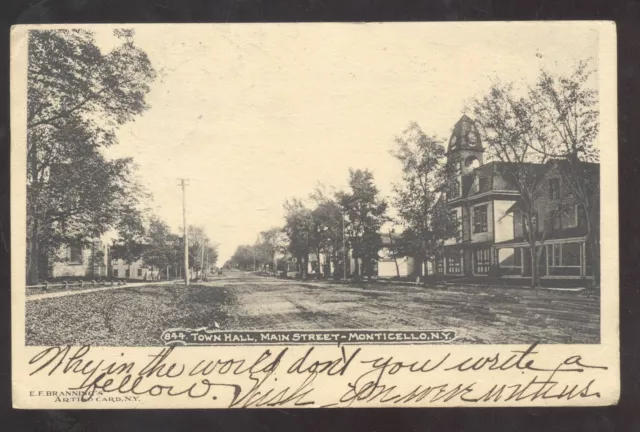 844. TOWN HALL, MAIN STREET - MONTICELLO, N.Y.
Why in the world don't you write a
fellow. Wish Em were with us
E. F. BRANNING'S
ART CARD, N.Y.